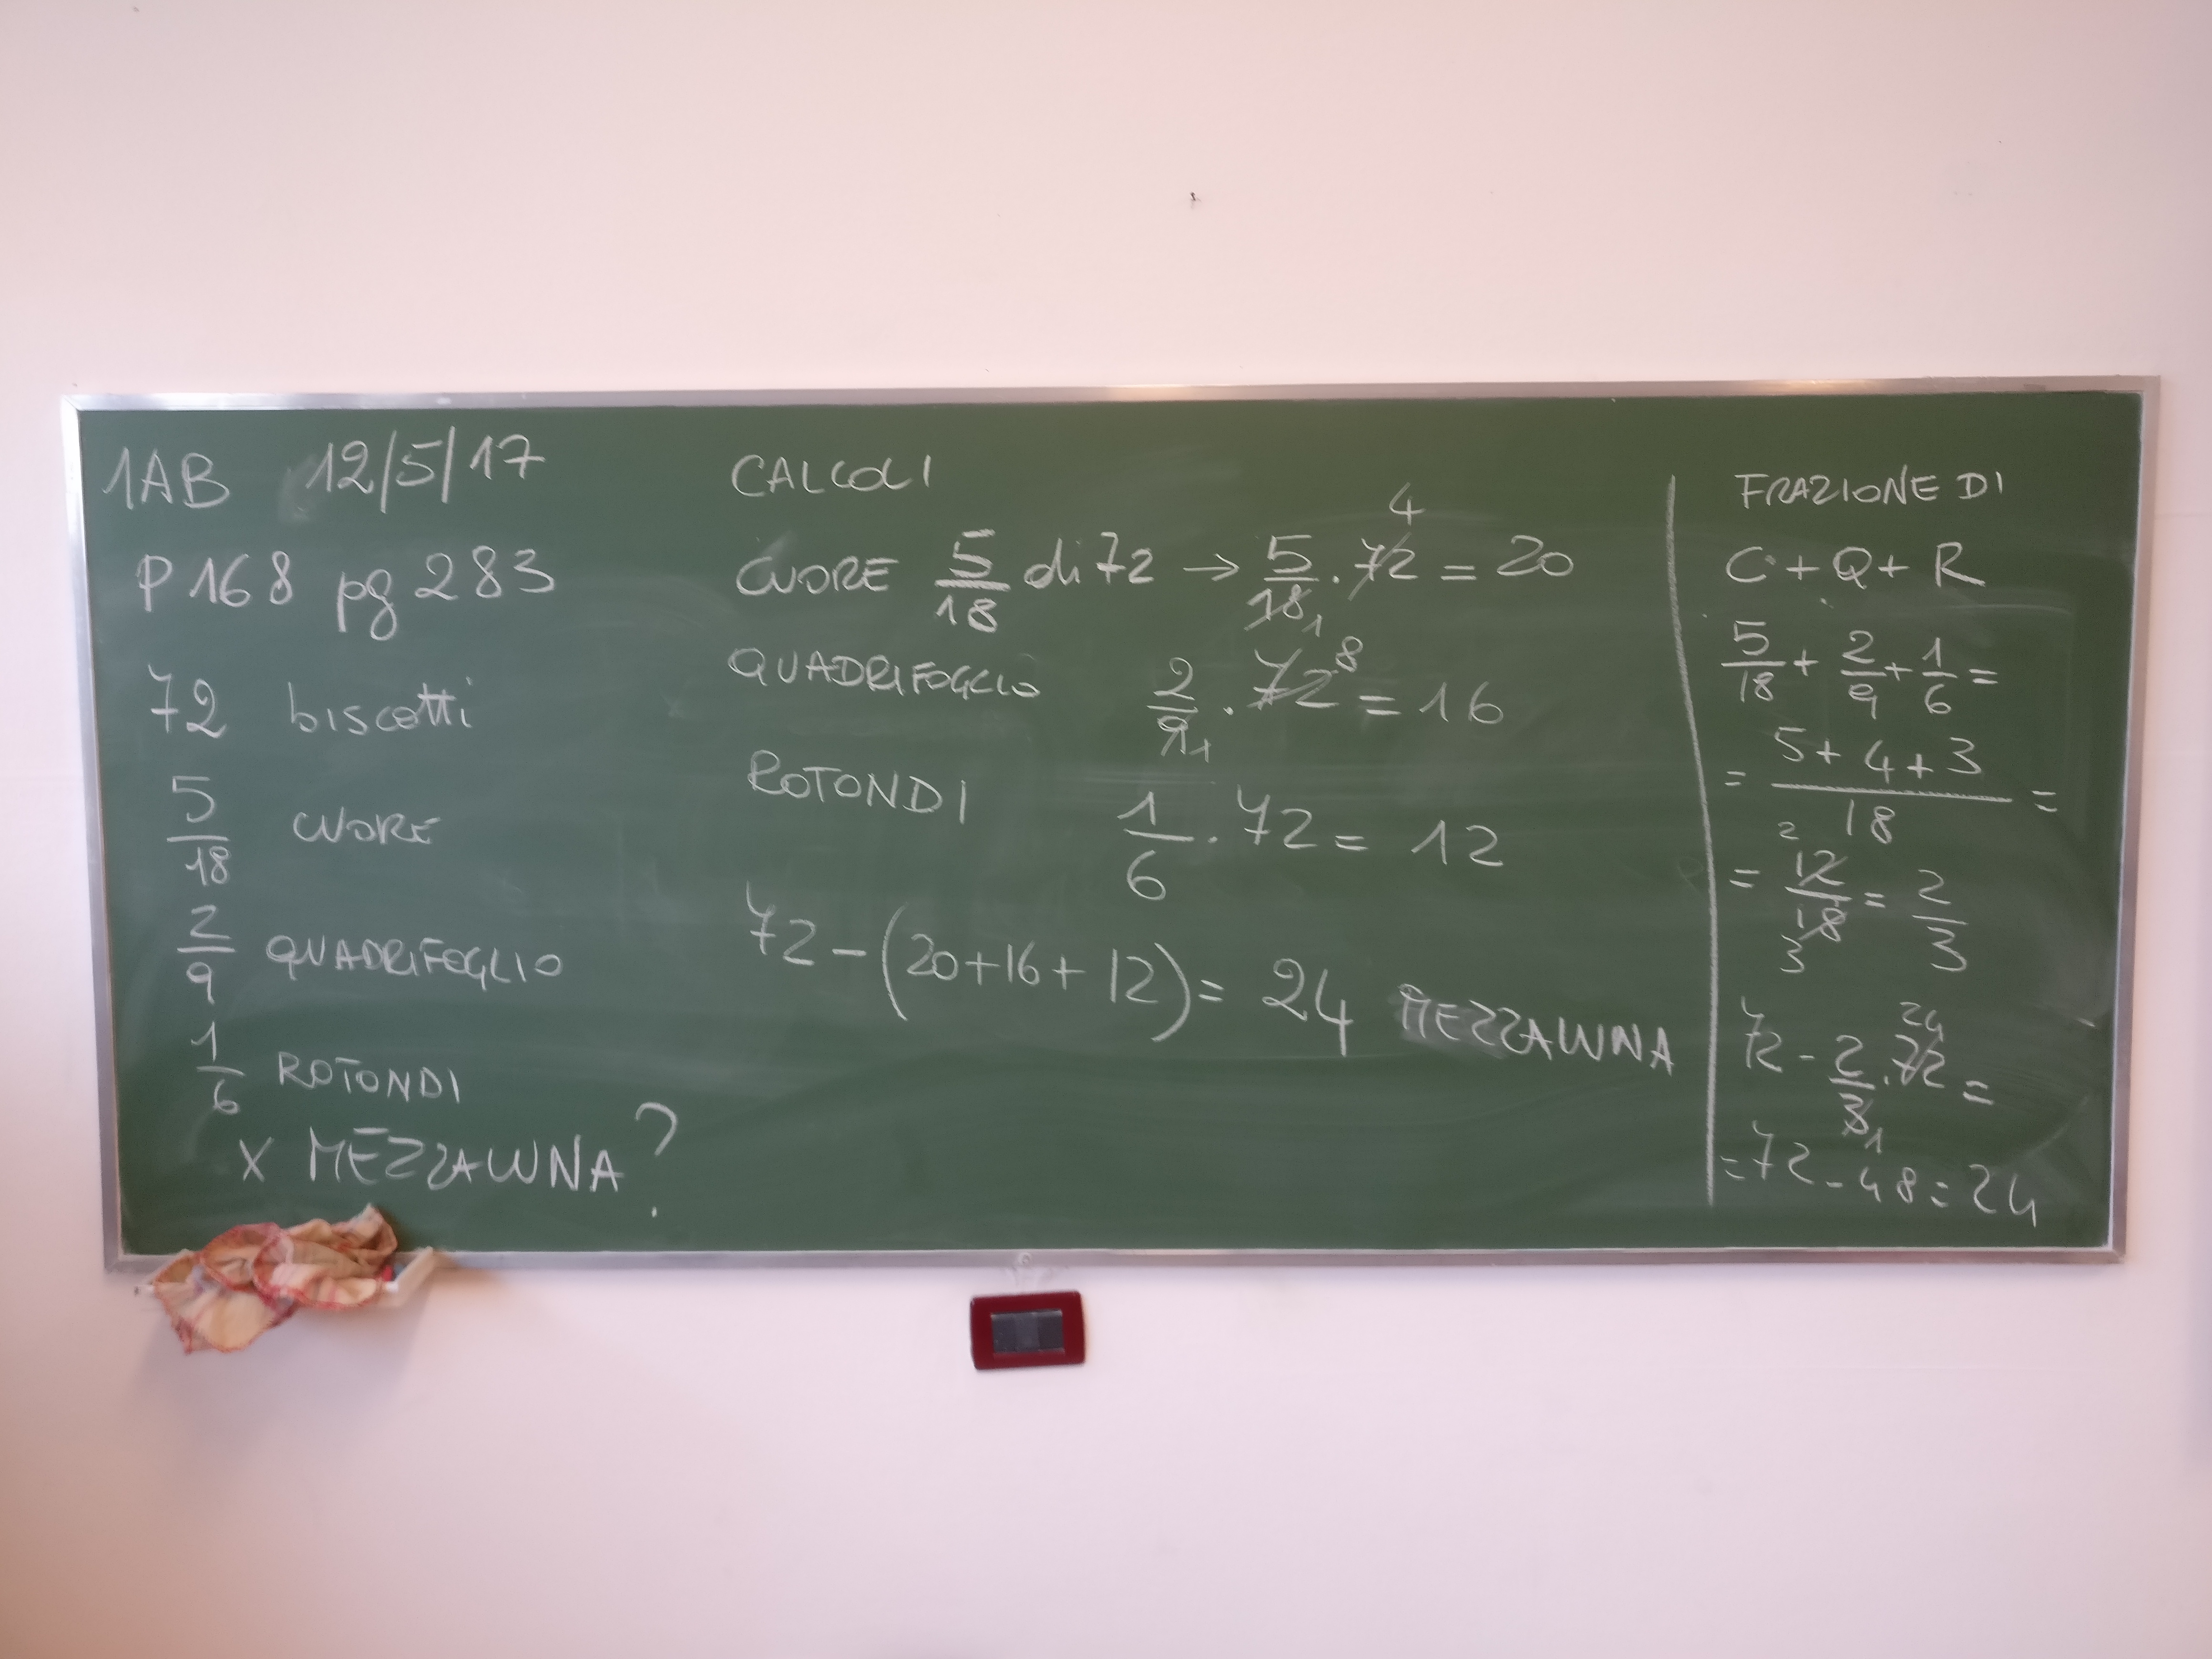 1AB 12/5/17
P168 pg 283
72 biscotti
5/18 CUORE
2/9 QUADRIFOGLIO
1/6 ROTONDI
X MEZZALUNA?
CALCOLI
4
CUORE 5/18 di 72 → 5/18 1 · 72 = 20
QUADRIFOGLIO 2/9 1 · 72 8 = 16
ROTONDI 1/6 · 72 = 12
72 - (20+16+12) = 24 MEZZALUNA
FRAZIONE DI
C + Q + R
5/18 + 2/9 + 1/6 =
= 5+4+3/18 =
2
= 12/18 = 2/3
3
24
72 - 2/3 1 · 72 =
= 72 - 48 = 24